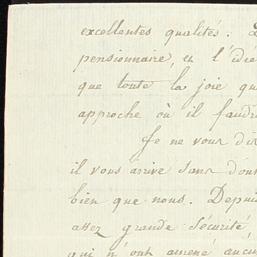 excellentes qualités.
pensionnaire, et l'idée
que toute la joie
approche où il
Je ne vous
il vous arrive sans
bien que nous. Depuis
assez grande sécurité,
qui n'ont amené